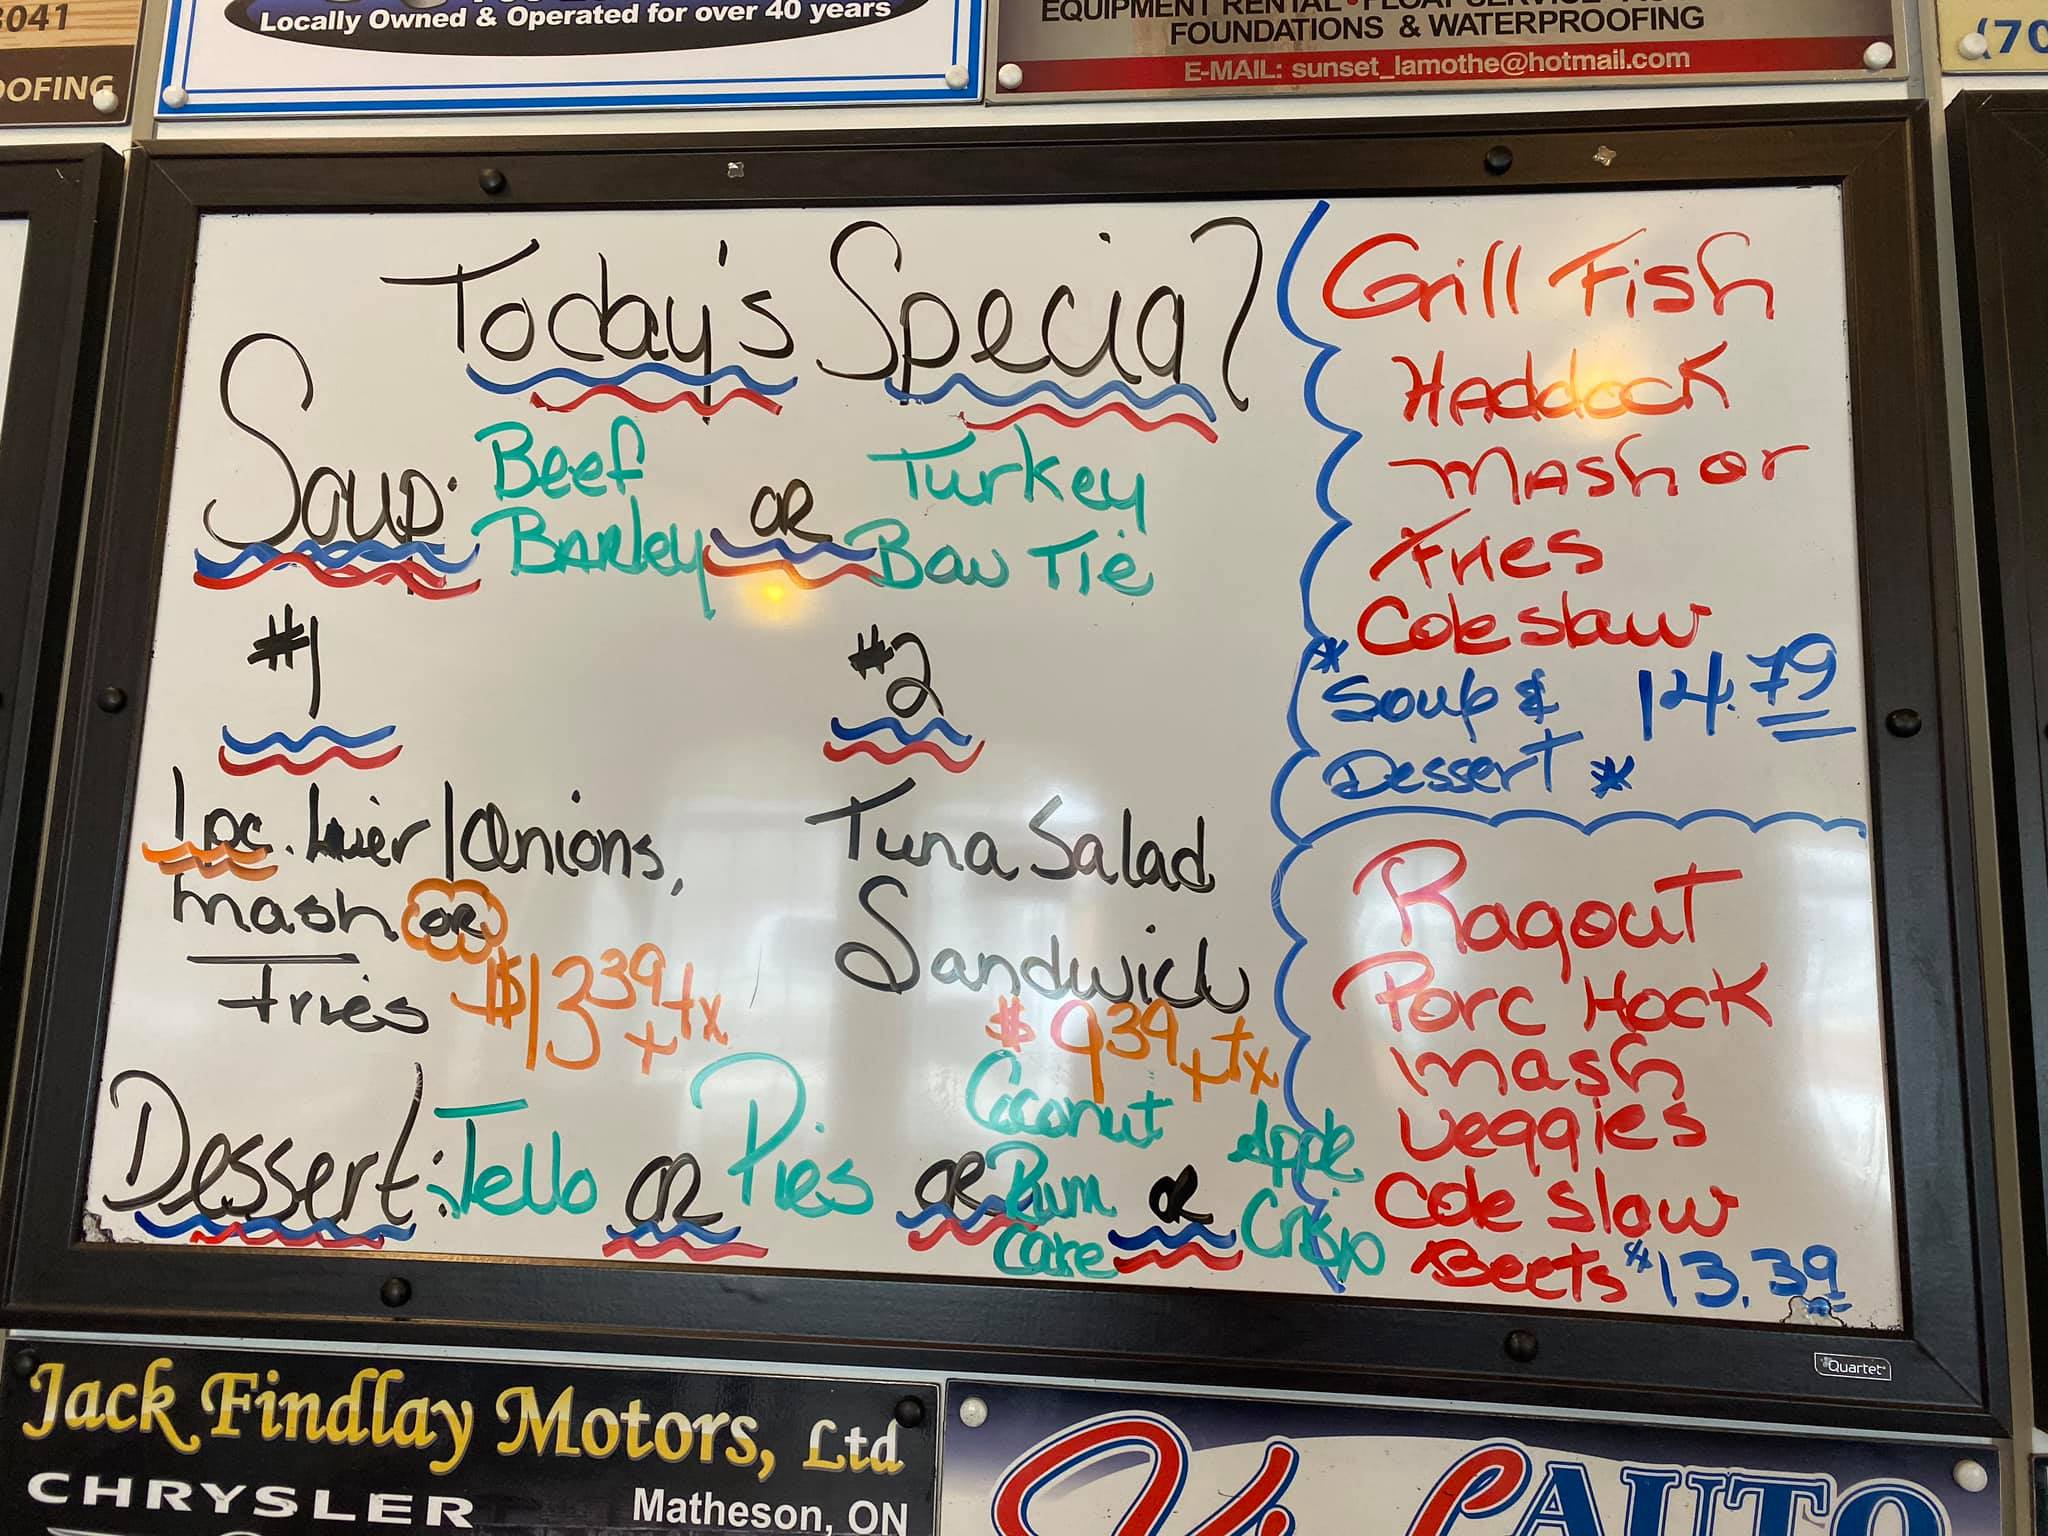 3041
OOFING
Locally Owned & Operated for over 40 years
FOUNDATIONS & WATERPROOFING
E-MAIL: sunset_lamothe@hotmail.com
(70
Today's Special
Soup: Beef Barley OR Turkey Bow Tie
#1
1 pc. Liver/Onions,
Mash OR
Fries $13 39 + tx
#2
Tuna Salad
Sandwich
$ 9 39 + tx
Dessert: Jello OR Pies OR Coconut Rum Cake OR Apple Crisp
Grill Fish
Haddock
Mash or
Fries
Coleslaw
* Soup & 14.79
Dessert *
Ragout
Porc Hock
Mash
Veggies
Cole Slaw
Beets $13.39
Quartet
Jack Findlay Motors, Ltd
CHRYSLER
Matheson, ON
AUTO